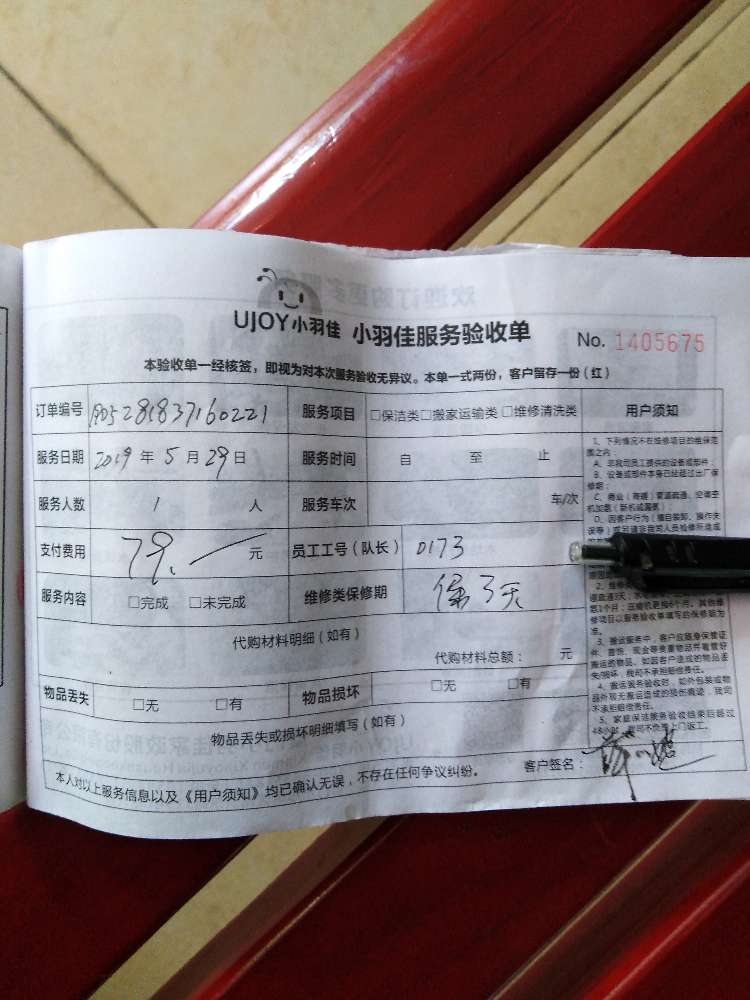 UJOY小羽佳 小羽佳服务验收单 No. 1405675
本验收单一经核签，即视为对本次服务验收无异议。本单一式两份，客户留存一份（红）
订单编号 服务项目 □保洁类□搬家运输类□维修清洗类 用户须知
服务日期 2019 年 5 月 29 日 服务时间 自 至 止
服务人数 1 人 服务车次 车/次
支付费用 79.— 元 员工工号（队长） 0173
服务内容 □完成 □未完成 维修类保修期 保了天
代购材料明细（如有）
代购材料总额： 元
物品丢失 □无 □有 物品损坏 □无 □有
物品丢失或损坏明细填写（如有）
本人对以上服务信息以及《用户须知》均已确认无误，不存在任何争议纠纷。 客户签名：
1、下列情况不在维修项目的维保范
围之内：
A、非我司员工提供的设备或部件；
B、设备或部件本身已经超过出厂保
修期；
3、搬运服务中，客户应随身保管证
件、首饰、现金等贵重物品并看管好
搬运的物品，如因客户造成的物品丢
失/损坏，我司不承担赔偿责任。
4、搬运服务验收时，如外包装或物
品外观无搬运造成的损伤痕迹，我司
不承担赔偿责任。
5、家庭保洁服务验收结束后超过